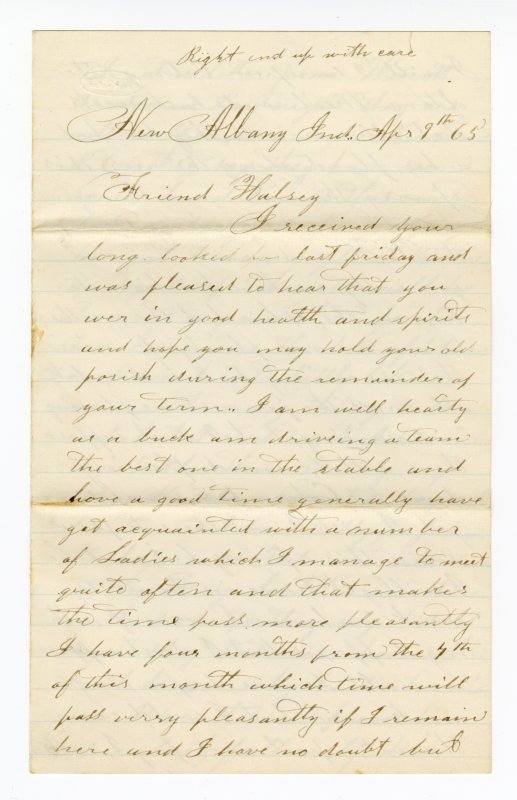 Right end up with care
New Albany Ind. Apr 9th 65
Friend Halsey
I received your
long looked for last friday and
was pleased to hear that you
wer in good health and spirits
and hope you may hold your old
posish during the remainder of
your term.. I am well hearty
as a buck am driveing a team
the best one in the stable and
have a good time generally have
got acquainted with a number
of Ladies which I manage to meet
quite often and that makes
the time pass more pleasantly
I have four months from the 4th
of this month which time will
pass verry pleasantly if I remain
here and I have no doubt but